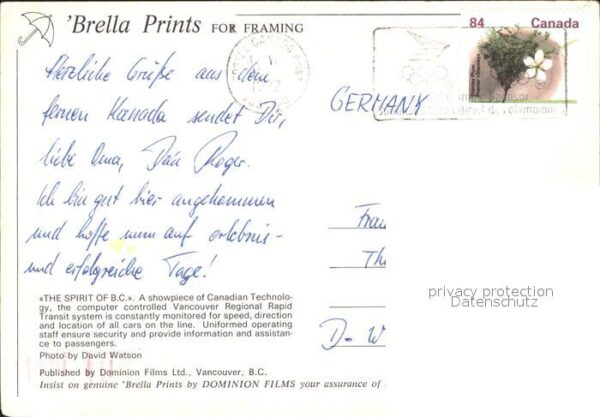 'Brella Prints FOR FRAMING
84 Canada
Herzliche Grüße aus dem
fernen Kanada sendet Dir,
liebe Oma, Dein Roger.
Ich bin gut hier angekommen
und hoffe nun auf erlebnis-
und erfolgreiche Tage!
GERMANY
Frau
Th
D- W
privacy protection
Datenschutz
«THE SPIRIT OF B.C.». A showpiece of Canadian Technolo-
gy, the computer controlled Vancouver Regional Rapid
Transit system is constantly monitored for speed, direction
and location of all cars on the line. Uniformed operating
staff ensure security and provide information and assistan-
ce to passengers.
Photo by David Watson
Published by Dominion Films Ltd., Vancouver, B.C.
Insist on genuine 'Brella Prints by DOMINION FILMS your assurance of